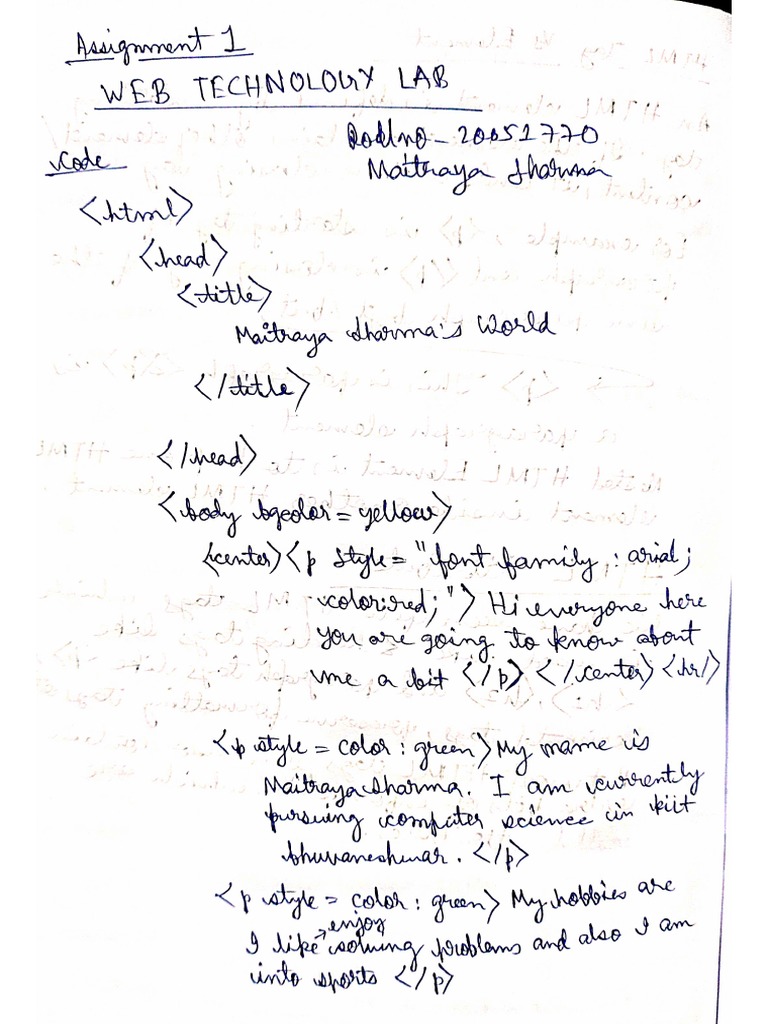 Assignment 1
WEB TECHNOLOGY LAB
Rollno - 20051770
Code
Maitraya Sharma
<html>
<head>
<title>
Maitraya Sharma's World
</title>
</head>
<body bgcolor = yellow>
<center><p style = "font family : arial;
color:red;"> Hi everyone here
you are going to know about
me a bit </p> </center> <hr/>
<p style = color : green> My name is
Maitraya Sharma. I am currently
pursuing computer science in kiit
bhuvaneshwar. </p>
<p style = color : green> My hobbies are
enjoy
I like solving problems and also I am
into sports </p>